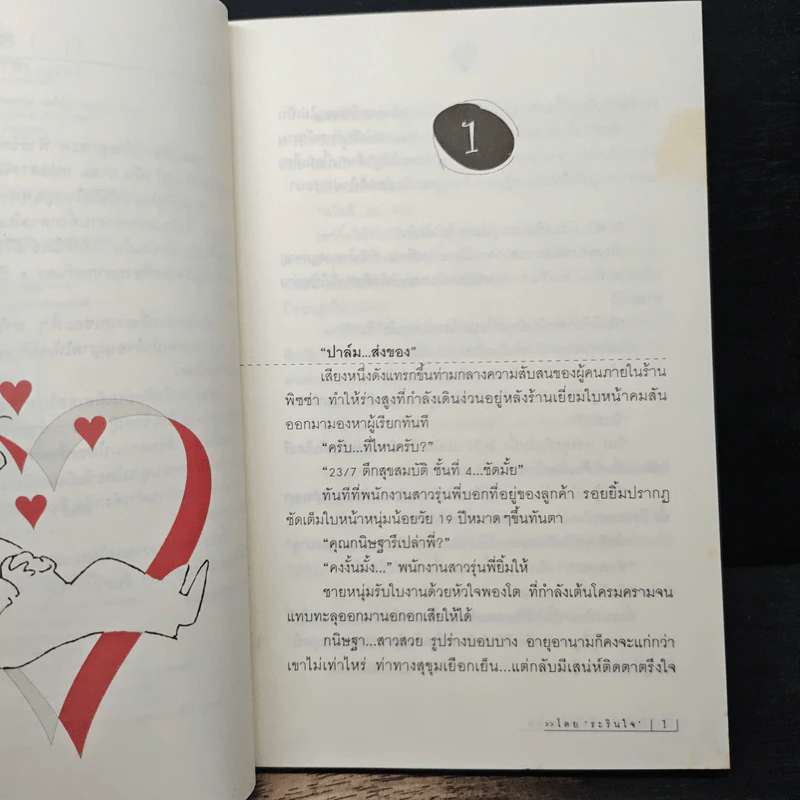 1
“ปาล์ม...ส่งของ”
เสียงหนึ่งดังแทรกขึ้นท่ามกลางความสับสนของผู้คนภายในร้าน
พิซซ่า ทำให้ร่างสูงที่กำลังเดินง่วนอยู่หลังร้านเยี่ยมใบหน้าคมสัน
ออกมามองหาผู้เรียกทันที
“ครับ...ที่ไหนครับ?”
“23/7 ตึกสุขสมบัติ ชั้นที่ 4...ชัดมั้ย”
ทันทีที่พนักงานสาวรุ่นพี่บอกที่อยู่ของลูกค้า รอยยิ้มปรากฏ
ชัดเต็มใบหน้าหนุ่มน้อยวัย 19 ปีหมาดๆขึ้นทันตา
“คุณกนิษฐารึเปล่าพี่?”
“คงงั้นมั้ง...” พนักงานสาวรุ่นพี่ยิ้มให้
ชายหนุ่มรับใบงานด้วยหัวใจพองโต ที่กำลังเต้นโครมครามจน
แทบทะลุออกมานอกอกเสียให้ได้
กนิษฐา...สาวสวย รูปร่างบอบบาง อายุอานามก็คงจะแก่กว่า
เขาไม่เท่าไหร่ ท่าทางสุขุมเยือกเย็น...แต่กลับมีเสน่ห์ติดตาตรึงใจ
>>โดย ‘ระรินใจ’ | 1